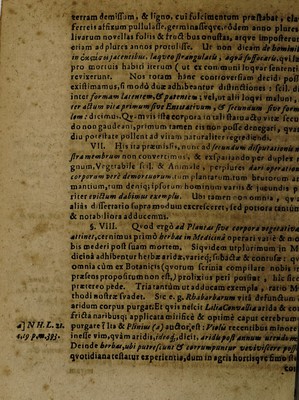 terram demissum, & ligno, cui fulcimentum præstabat, cla
ferreis affixum pullulasse, germinasseque, eôdem anno plures
livarum novellas foliis & fructibus onustas, atque imposterum
etiam ad plures annos protulisse. Ut non dicam de hominibus
pro mortuis habiti iterum (ut ex communi loquar sententiâ)
revixerunt. Nos totam hanc controversiam decidi posse
existimamus, si modò duæ adhibeantur distinctiones, scil.
inter formam latentem, & patentem; vel, ut alii loqui malunt,
rer actum vitæ primum sive Entitativum & secundum sive formalem
do non gaudeant, primum tamen iis non posse denegari, quan-
diu potestate pollent ad vitam naturaliter regrediendi.
VII. His ita præmissis, nunc ad secundum disputationis
stra membrum non convertimus, & exspatiando per duplex
gnum, Vegetabile scil. & Animale, perplures dari operationes
corporum verè demortuorum, tum plantarum, tum brutorum a-
mantium, tum denique ipsorum hominum variis & jucundis
riter evictum dabimus exemplis. Uni tamen non omnia, qua
aliàs dissertatio supra modum excresceret, sed potiora tantùm
& notabiliora adducemus.
§. VIII. Quod ergò ad Plantas sive corpora vegetativa
attinet, cernimus primò herbas in Medicinâ operari variè & mo-
bis mederi post suam mortem. Siquidem utplurimum in Me
dicinâ adhibentur herbæ aridæ, variæque subactæ & confusæ:
omnia cùm ex Botanicis (quorum scrinia compilare nobis in
præsens propositum non est) prolixius peti possint, libs siccô
prætereo pede. Tria tantùm ut adducam exempla, ratio Me
thodi nostræ svadet. Sic e. g. Rhabarbarum vitâ defunctum
aridum corpus purgat. Et quis nescit Lilia Convallia arida & con
fricta naribusque applicata mirificè & optimè caput cerebrumque
purgare? Ita & Plinius (a) auctor, est: Violis recentibus minorem
inesse vim, quàm aridis, idque, dicit, aridis post annum utendum
Deinde herbas, ubi putrescunt & corrumpuntur
quotidiana testatur experientia, dum in agris hortisque fimo
a] N. H. L. 21.
c. 19 p. m. 393.